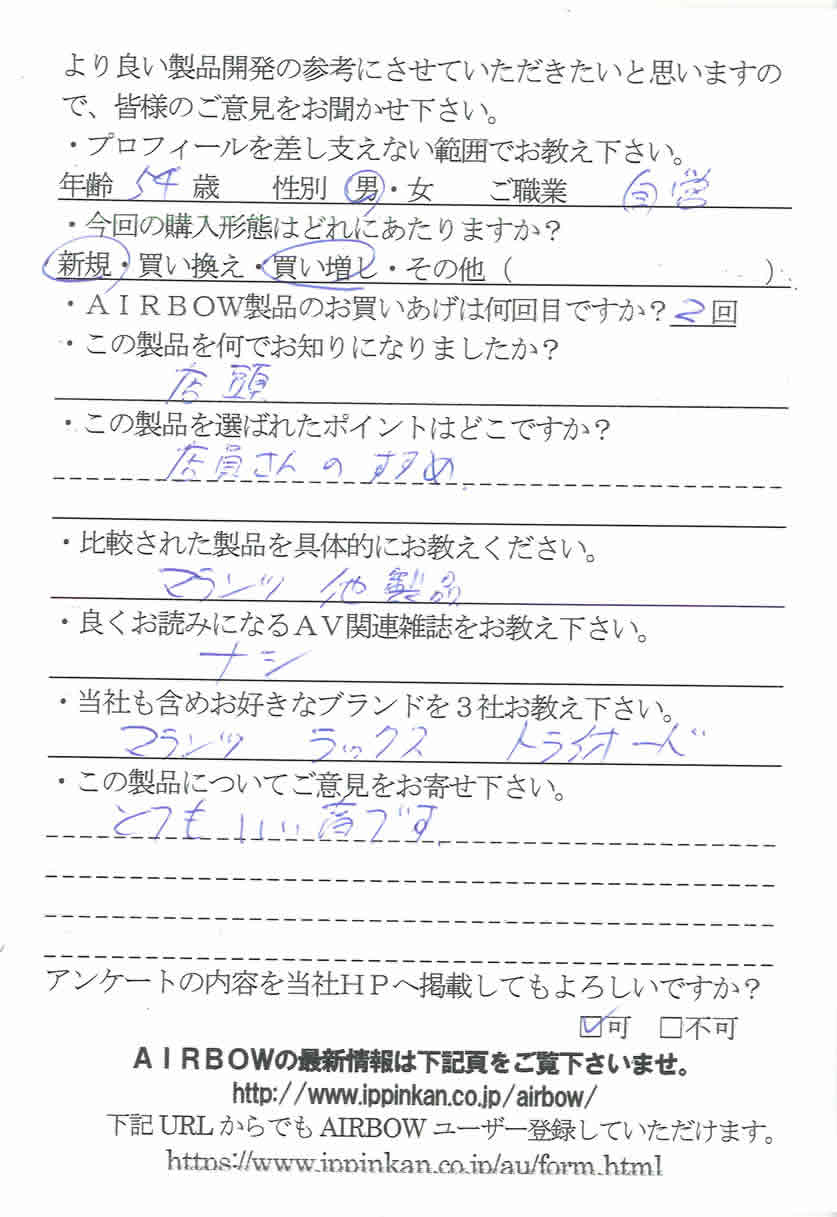 より良い製品開発の参考にさせていただきたいと思いますの
で、皆様のご意見をお聞かせ下さい。
・プロフィールを差し支えない範囲でお教え下さい。
年齢 54 歳 性別 男・女 ご職業 自営
・今回の購入形態はどれにあたりますか?
新規・買い換え・買い増し・その他 ( )
・AIRBOW製品のお買いあげは何回目ですか? 2回
・この製品を何でお知りになりましたか?
店頭
・この製品を選ばれたポイントはどこですか?
店員さんのすすめ.
・比較された製品を具体的にお教えください。
マランツ 他製品
・良くお読みになるAV関連雑誌をお教え下さい。
ナシ
・当社も含めお好きなブランドを3社お教え下さい。
マランツ ラックス トライオード
・この製品についてご意見をお寄せ下さい。
とてもいい音です.
アンケートの内容を当社HPへ掲載してもよろしいですか?
☑可 □不可
AIRBOWの最新情報は下記頁をご覧下さいませ。
http://www.ippinkan.co.jp/airbow/
下記URLからでもAIRBOWユーザー登録していただけます。
https://www.ippinkan.co.jp/au/form.html